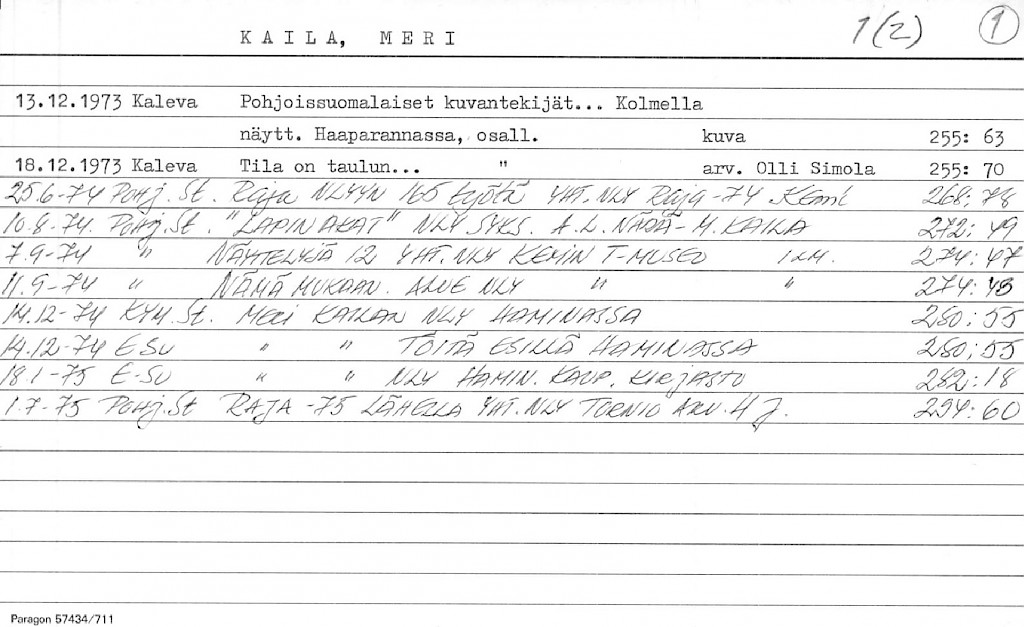 KAILA, MERI 1(2) 1
13.12.1973 Kaleva Pohjoissuomalaiset kuvantekijät... Kolmella
näytt. Haaparannassa, osall. kuva 255: 63
18.12.1973 Kaleva Tila on taulun... " arv. Olli Simola 255: 70
25.6-74 Pohj. St. Raja NLYYN 165 työtä YHT. NLY Raja-74 Kemi 268: 78
10.8-74. Pohj. St. "LAPIN AKAT" NLY SYKS. A.L. - M. KAILA 272: 49
7.9-74 " NÄYTTELYJÄ 12 YHT. NLY KEMIN T-MUSEO ILM. 274: 47
11.9-74 " NÄMÄ MUKAAN. ALUE NLY " " 274: 48
14.12-74 KYM. St. Meri KAILAN NLY HAMINASSA 280: 55
14.12-74 E-Su " " TÖITÄ ESILLÄ HAMINASSA 280: 55
18.1-75 E-Su " " NLY HAMIN. KAUP. KIRJASTO 282: 18
1.7-75 Pohj. St RAJA -75 LÄHELLÄ YHT. NLY TORNIO ARV. 294: 60
Paragon 57434/711